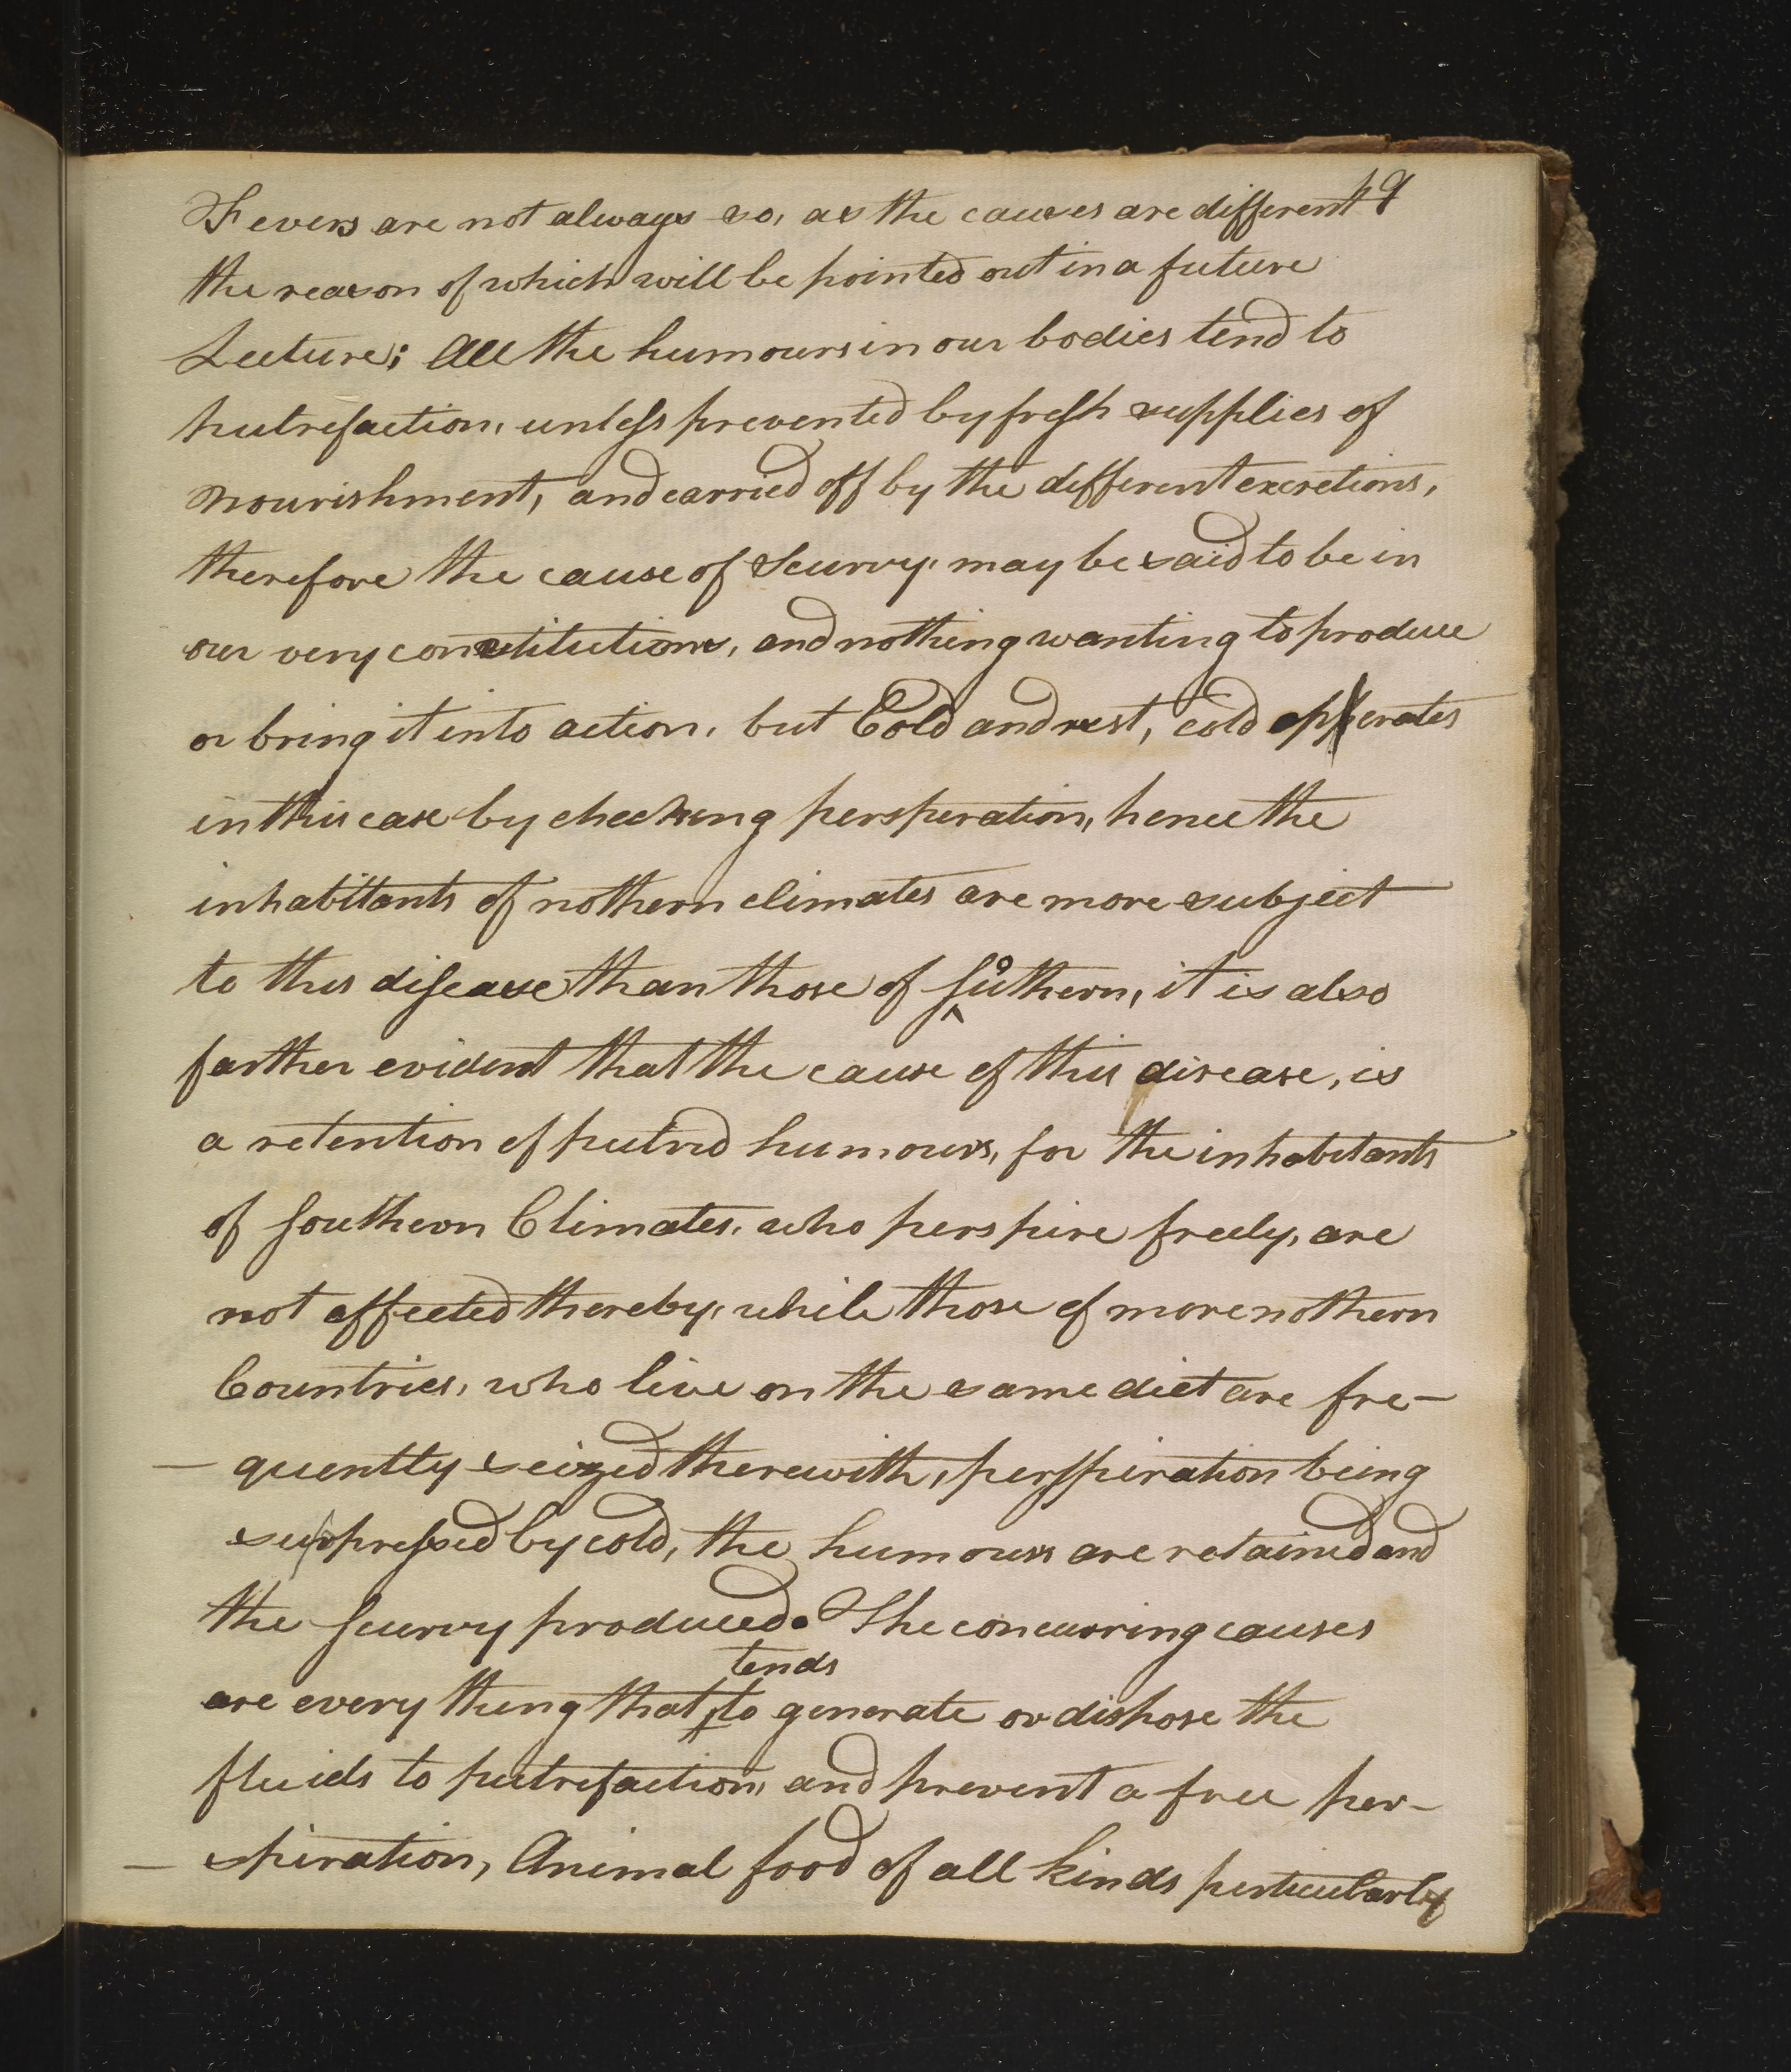 Fevers are not always so, as the causes are different 
the reason of which will be pointed out in a future
Lecture; All the humours in our bodies tend to
putrefaction, unless prevented by fresh supplies of
nourishment, and carried off by the different excretions,
therefore the cause of Scurvy, may be said to be in
our very constitutions, and nothing wanting to produce
or bring it into action, but Cold and rest, cold opperates
in this case by checking persperation, hence the
inhabitants of nothern climates are more subject
to this disease than those of southern, it is also
farther evident that the cause of this disease, is
a retention of putrid humours, for the inhabitants
of southern Climates, who perspire freely, are
not affected thereby, while those of more nothern
Countries, who live on the same diet are fre-
- quently seized therewith, perspiration being
suppressed by cold, the humours are retained and
the scurvy produced. The concurring causes
are every thing that tends to generate or dispose the
fluids to putrefaction, and prevent a free per-
- spiration, Animal food of all kinds perticularly